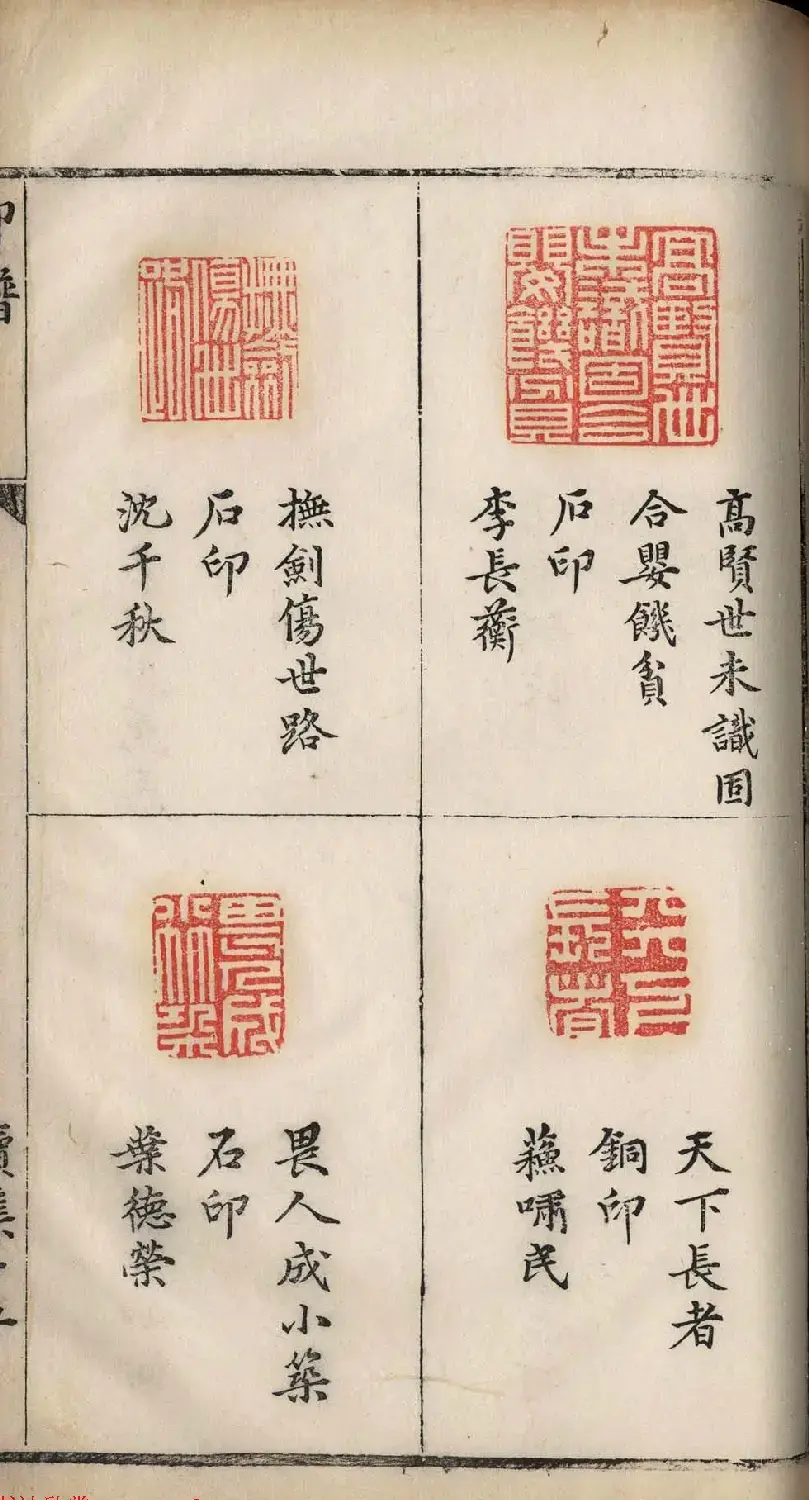 高賢世未識固
合嬰饑貧
石印
李長蘅
撫劍傷世路
石印
沈千秋
天下長者
銅印
蘓嘯民
畏人成小築
石印
葉德榮
印譜